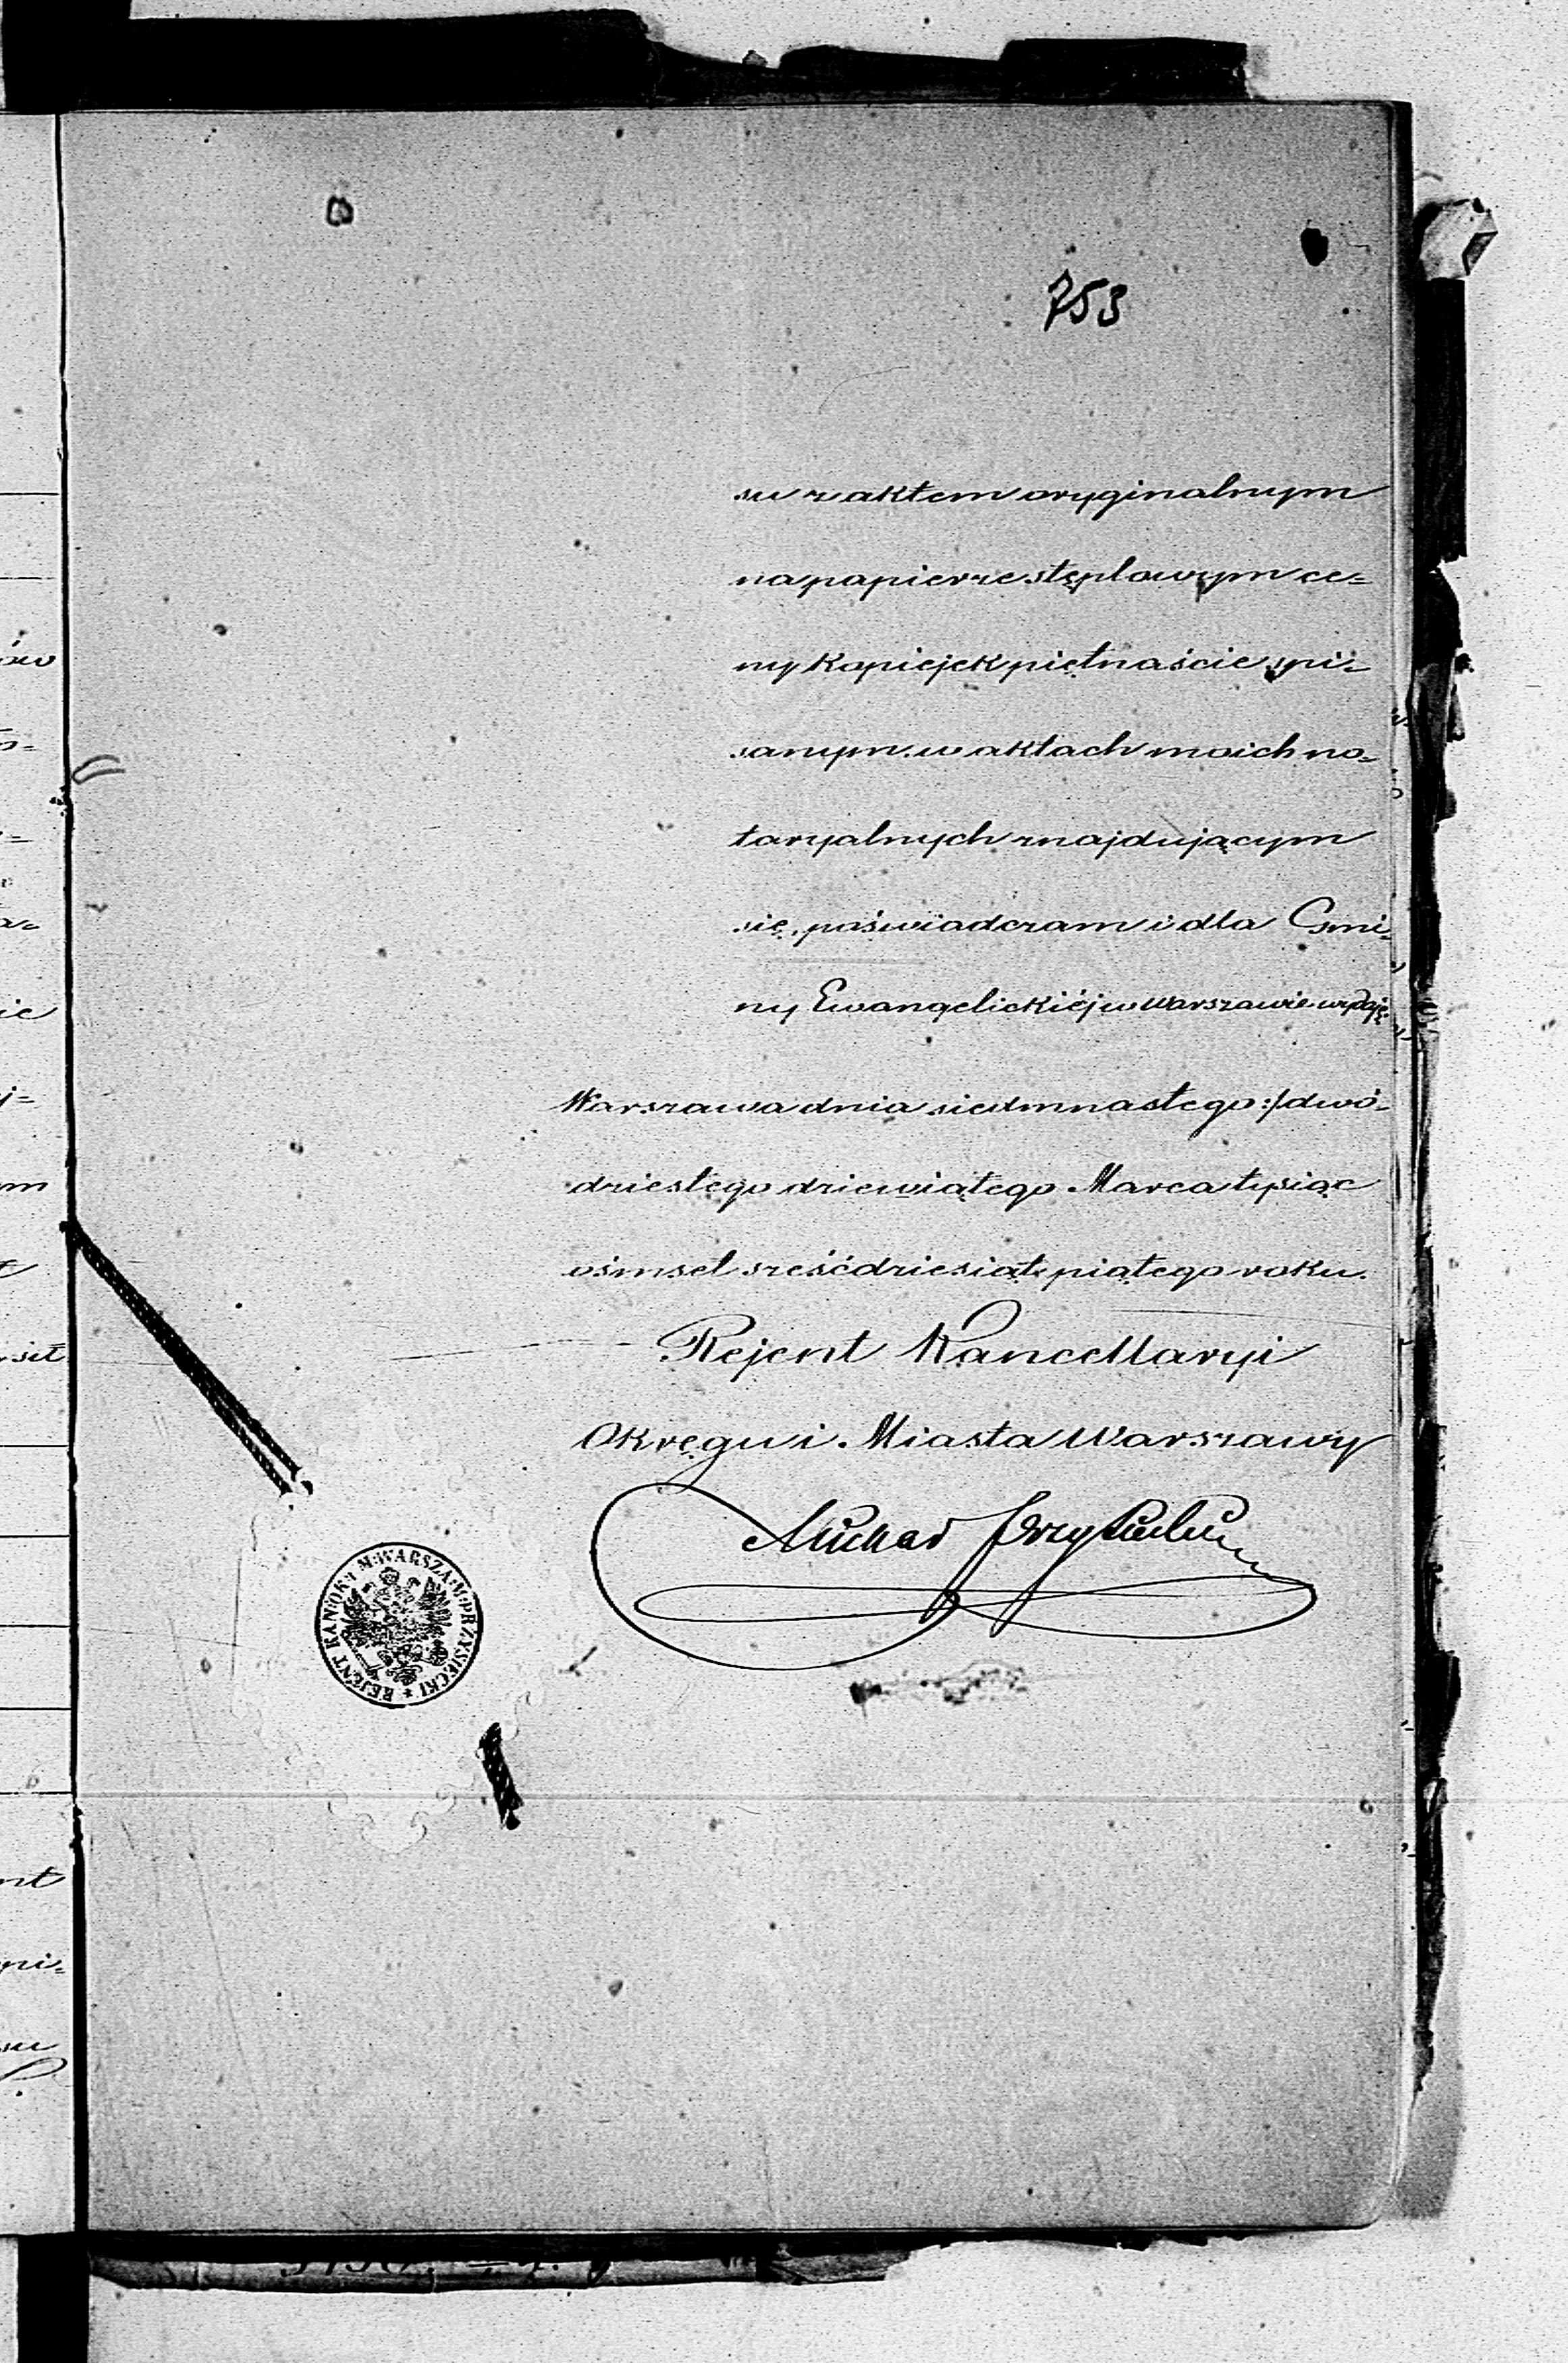 753
su z aktem oryginalnym
na papierze stęplowym ce=
ny kopiejek piętnaście spi=
sanym w aktach moich no=
taryalnych znajdującym
się, poświadczam i dla Gmi=
ny Ewangelickiéj w Warszawie wydaję
Warszawa dnia siedmnastego :/ dwó=
dziestego dziewiątego Marca tysiąc
ośmset sześćdziesiąt piątego roku.
Rejent Kancellaryi
Okręgu i Miasta Warszawy
REJENT KAN: OKR: I M: WARSZA: M: PRZYSIECKI *
ów
o=
a=
ie
j=
m
set
nt
pi=
su